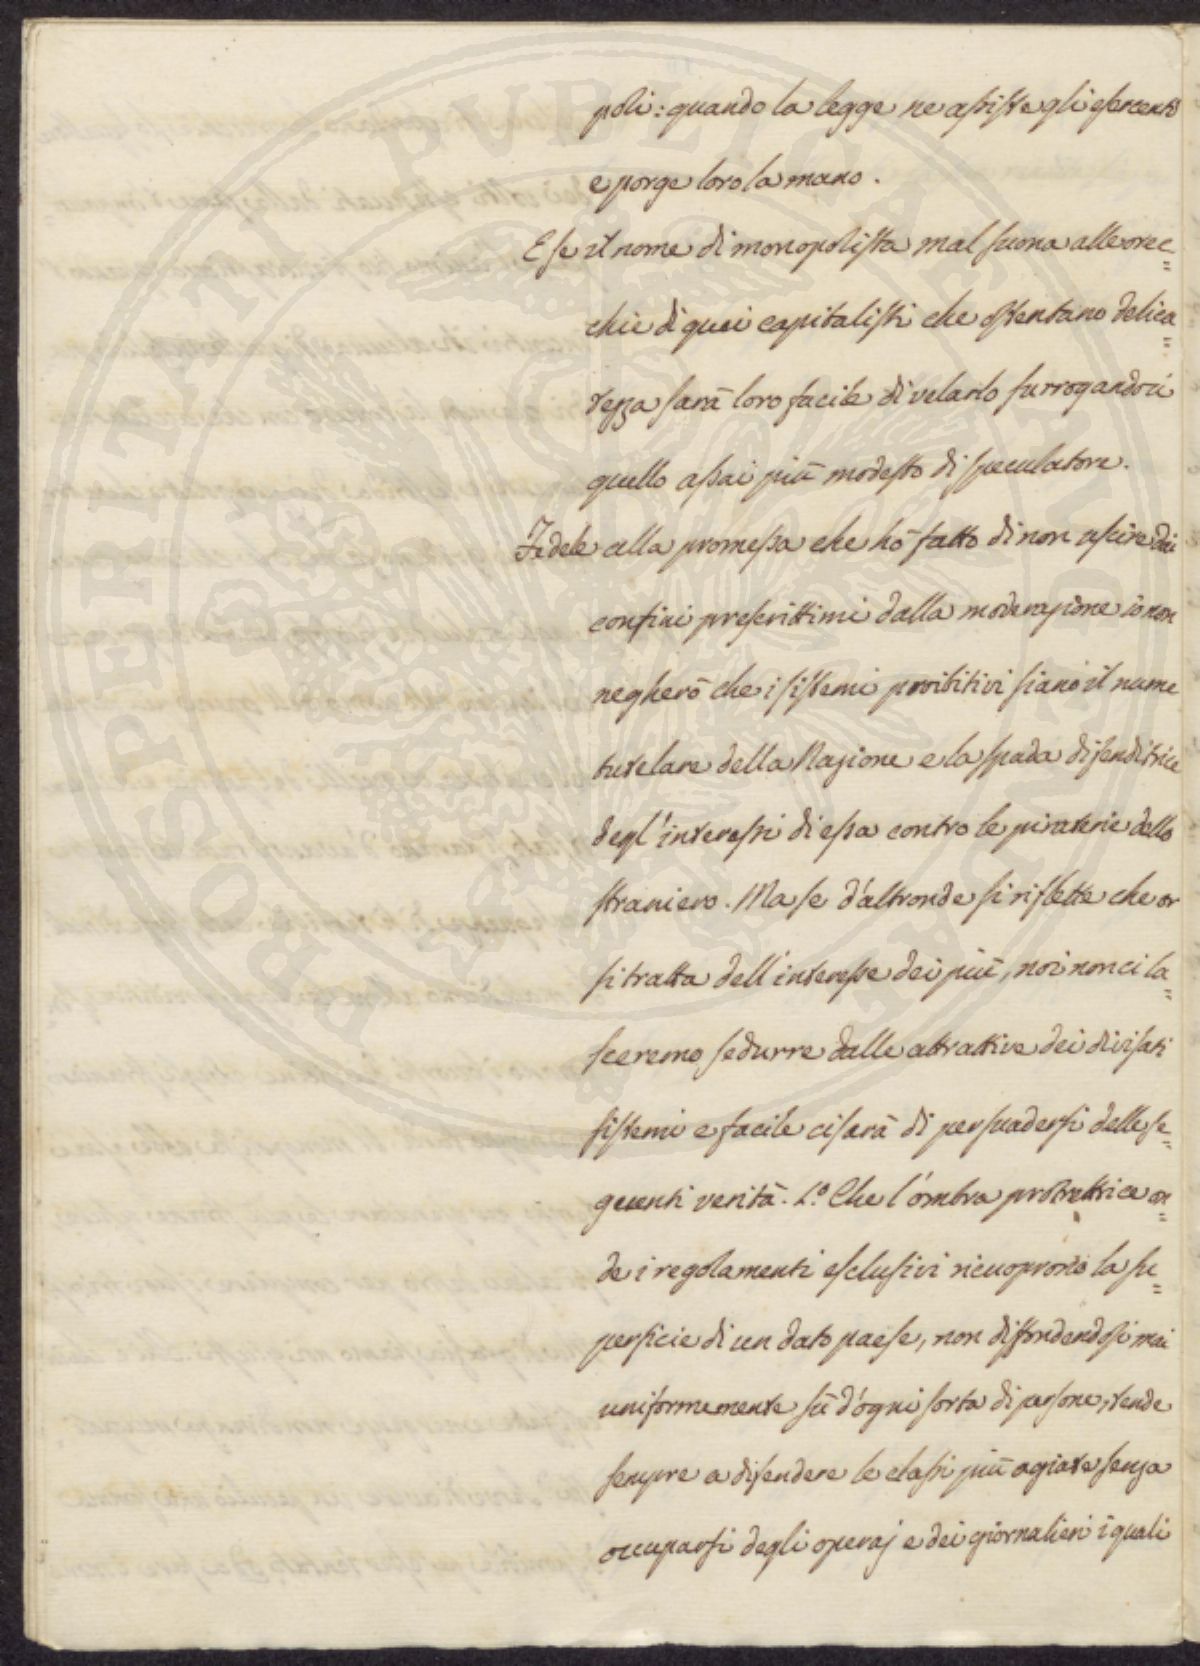 poli: quando la legge ne assiste gli esercenti
e porge loro la mano.
E se il nome di monopolista mal suona alle orec=
chie di quei capitalisti che ostentano delica=
tezza sarà loro facile di velarlo surrogandoci
quello assai più modesto di speculatore.
Fedele alla promessa che hò fatto di non uscire dai
confini prescrittimi dalla moderazione io non
negherò che i sistemi proibitivi siano il nume
tutelare della Nazione e la spada difenditrice
degl'interessi di essa contro le piraterie dello
straniero. Ma se d'altronde si riflette che or
si tratta dell'interesse dei più, noi non ci la=
sceremo sedurre dalle attrattive dei divisati
sistemi e facile ci sarà di persuadersi delle se=
guenti verità. 1.° Che l'ombra protrettrice on=
de i regolamenti esclusivi ricuoprono la su=
perficie di un dato paese, non diffondendosi mai
uniformemente sù d'ogni sorta di persone, tende
sempre a difendere le classi più agiate senza
occuparsi degli operaj e dei giornalieri i quali
PROSPERITATI PUBLICAE AUGENDAE